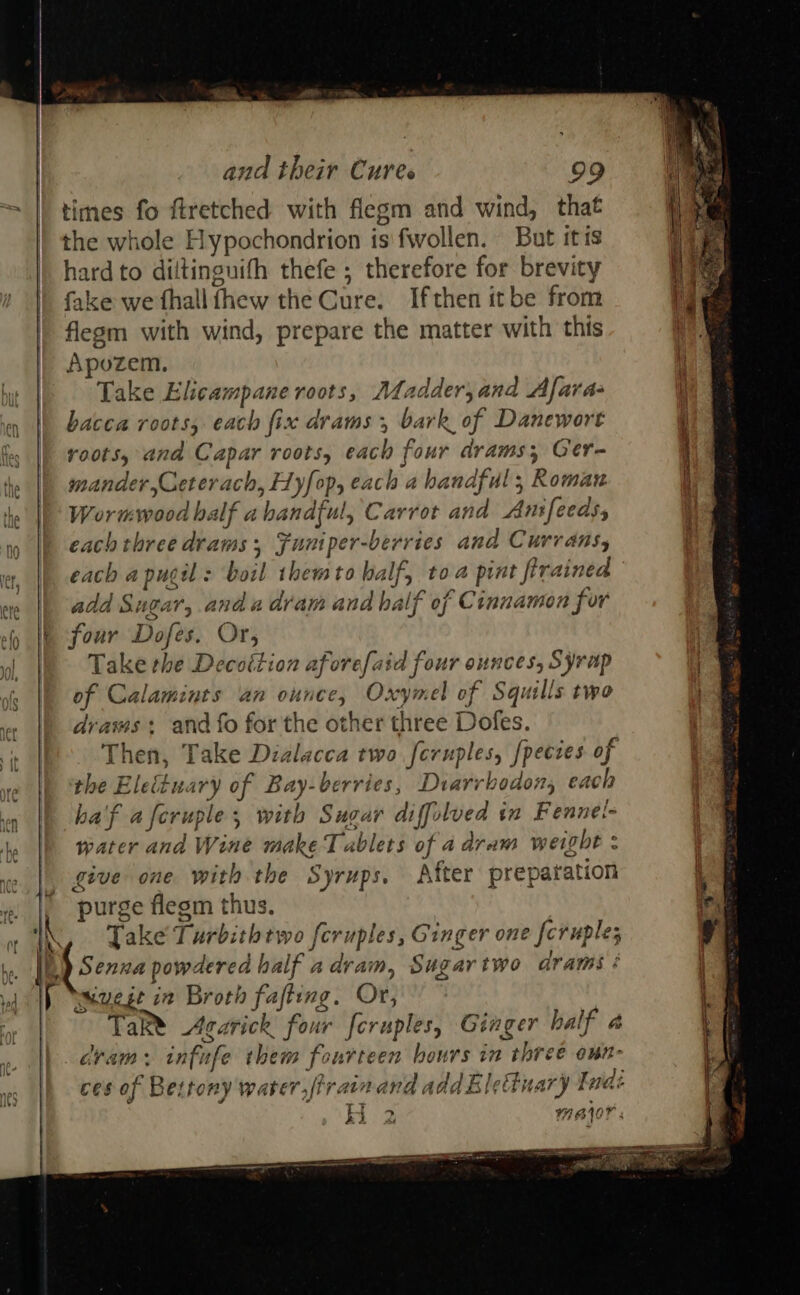 and their Cure. 99
times ſo ſtretched with flegm and wind, that
the whole Hypochondrion is ſwollen. But it is
hard to diſtinguiſh theſe ; therefore for brevity
ſake we ſhall ſhew the Cure. If then it be from
flegm with wind, prepare the matter with this
Apozem.
Take Elicampane roots, Madder, and Aſara-
bacca roots, each ſix drams ; bark of Danewort
roots, and Capar roots, each four drams; Ger-
mander, Ceterach, Hyſop, each a handful ; Roman
Wormwood half a handful, Carrot and Aniſeeds,
each three drams ; Juniper-berries and Currans,
each a pugil : boil them to half, to a pint ſtrained
add Sugar, and a dram and half of Cinnamon for
four Doſes. Or,
Take the Decoction aforeſaid four ounces, Syrup
of Calamints an ounce, Oxymel of Squills two
drams : and ſo for the other three Doſes.
Then, Take Dialacca two ſcruples, ſpecies of
the Electuary of Bay-berries, Diarrhodon, each
half a ſcruple ; with Sugar diſſolved in Fennel-
water and Wine make Tablets of a dram weight :
give one with the Syrups. After preparation
purge flegm thus.
Take Turbith two ſcruples, Ginger one ſcruple;
Senna powdered half a dram, Sugar two drams :
give it in Broth faſting. Or,
Take Agarick four ſcruples, Ginger half a
dram : infuſe them fourteen hours in three oun-
ces of Bettony water, ſtrain and add Electuary Indi
H 2 major.
but
hen
the
the
no
ver,
ere
it
ore
hen
be
nce
re-
or
be-
for